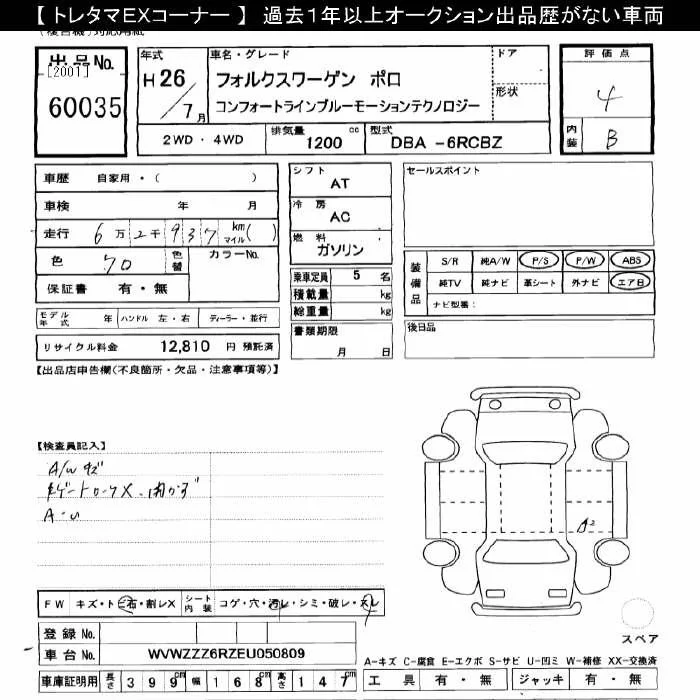 【 トレタマEXコーナー 】 過去1年以上オークション出品歴がない車両
出品No.
[2001]
60035
年式
H26
/7月
車名・グレード
フォルクスワーゲン ポロ
コンフォートラインブルーモーションテクノロジー
ドア
形状
評価点
4
内装
B
2WD ・ 4WD
排気量 1200 cc
型式 DBA -6RCBZ
車歴 自家用・( )
車検 年 月
走行 6万2千937 km マイル( )
色
色替
カラーNo.
保証書 有・無
モデル年式 年
ハンドル 左・右
ディーラー・並行
リサイクル料金 12,810 円 預託済
シフト
AT
冷房
AC
燃料
ガソリン
乗車定員 5 名
積載量 kg
総重量 kg
書類期限
月 日
セールスポイント
装備品
S/R 純A/W P/S P/W ABS
純TV 純ナビ 革シート 外ナビ エアB
ナビ型番:
後日品
【出品店申告欄(不良箇所・欠品・注意事項等)】
【検査員記入】
A/w キズ
A-U
A2
FW キズ・トビ石・割レX
シート内装 コゲ・穴・汚レ・シミ・破レ・スレ
登録 No.
車台 No. WVWZZZ6RZEU050809
車庫証明用 長さ 399cm 幅 168cm 高さ 147cm
スペア
A-キズ C-腐食 E-エクボ S-サビ U-凹ミ W-補修 XX-交換済
工具 有・無 ジャッキ 有・無